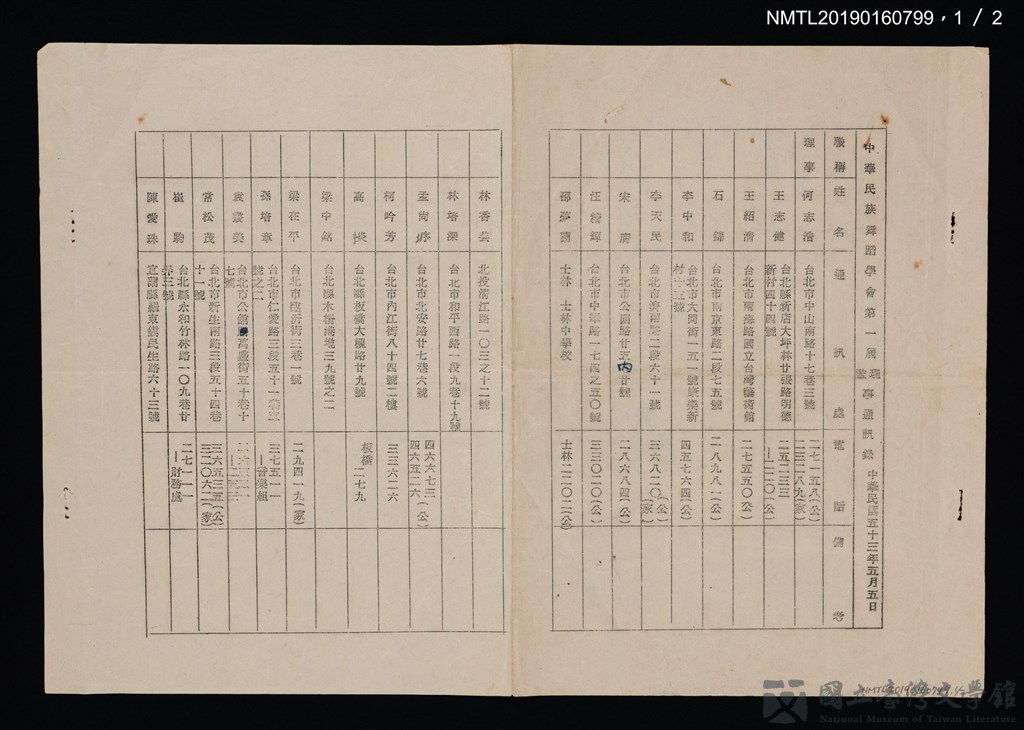 NMTL20190160799，1 / 2
中華民族舞蹈學會第一屆理監事通訊錄 中華民國五十三年五月五日
職稱 姓名 通訊處 電話 備考
理事 何志浩 台北市中山南路十七巷三號 二七一五八(公) 二三二八九(家)
王志健 台北縣新店大坪林廿張路明德新村四十四號
王紹清 台北市南海路國立台灣藝術館 二七五五〇(公)
石錦 台北市南京東路二段七五號 二八九八一(公)
李中和 台北市大同街一五一號康樂新村十五號 四五七六四(公)
李天民 台北市濟南路二段六十一號 三六八二〇(公)(家)
宋膺 台北市公園路廿五內廿號 二八六八四(公)
汪精輝 台北市中華路一七四之五〇號 三三〇二〇(公)
邵夢蘭 士林 士林中學校 士林二二〇二(公)
林香芸 北投清江路一〇三之十二號
林培深 台北市和平西路一段九巷十九號
孟尚 台北市北安路廿七巷六號 四六六七三 四六五二六(公)
柯吟芳 台北市內江街八十四號二樓 三三六二六
高棪 台北縣板橋大觀路廿九號 板橋 二七九
梁中銘 台北縣木柵溝墘三九號之二
梁在平 台北市臨沂街三巷一號 二九四一九(家)
孫培章 台北市仁愛路三段五十一巷三號之二 三七五一一 — 音樂組
袁叢美 台北市公館萬盛街五十巷十七號
常松茂 台北市新生南路三段五十四巷十一號 三六五三五(公) 三二〇六二(家)
崔駒 台北縣永和竹林路一〇九巷廿弄三號 二七一一一 — 財務處
陳愛珠 宜蘭縣羅東鎮民生路六十三號
NMTL20190160799.1/2
國立臺灣文學館
National Museum of Taiwan Literature